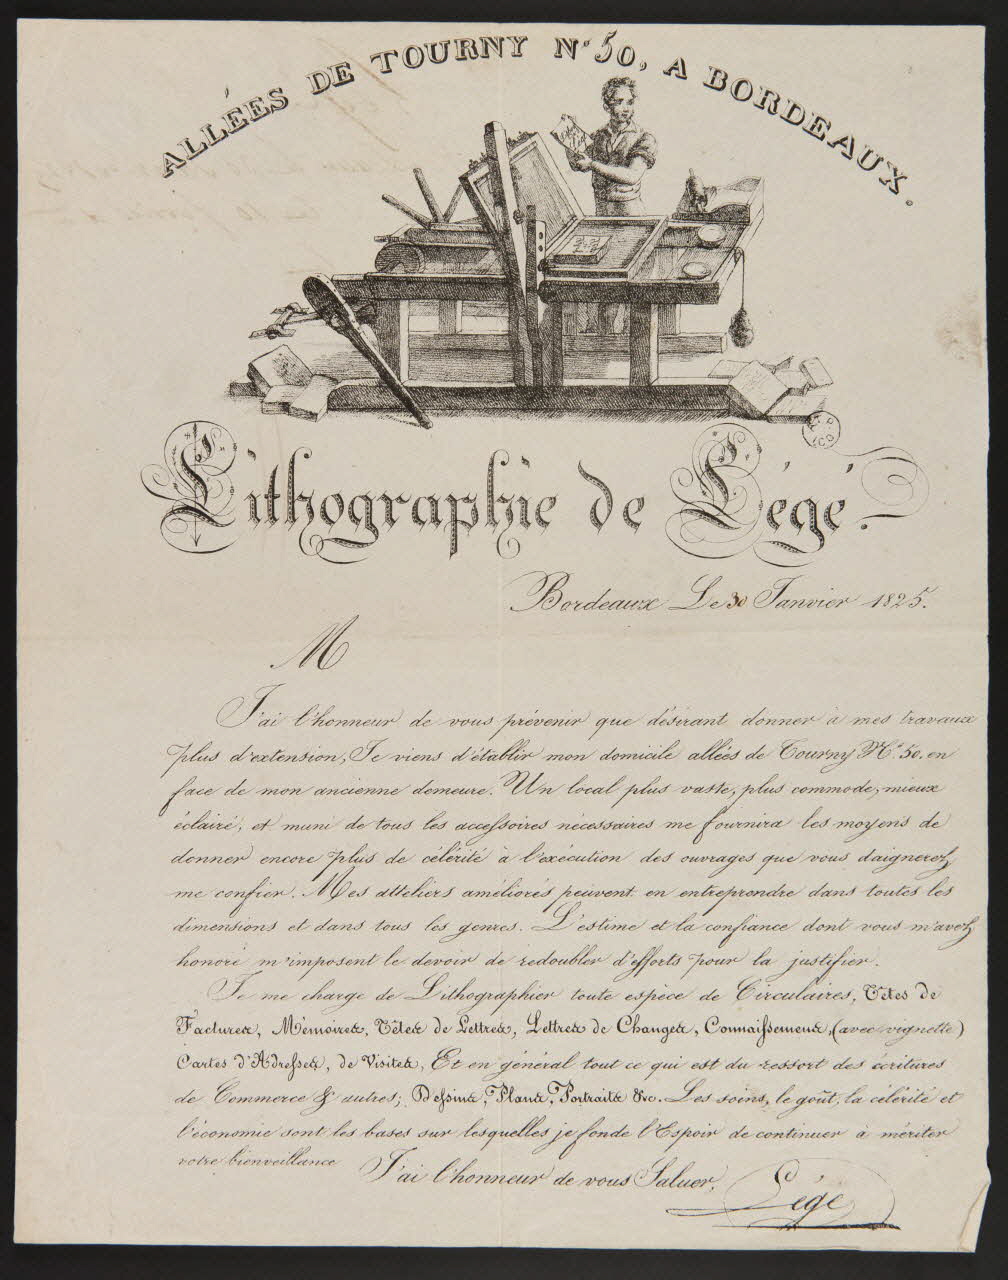 ALLÉES DE TOURNY Nº 50, A BORDEAUX.
Lithographie de Légé.
Bordeaux Le 30 Janvier 1825.
M
J'ai l'honneur de vous prévenir que désirant donner à mes travaux
plus d'extension, Je viens d'établir mon domicile allées de Tourny Nº 50. en
face de mon ancienne demeure. Un local plus vaste, plus commode, mieux
éclairé, et muni de tous les accessoires nécessaires me fournira les moyens de
donner encore plus de célérité à l'exécution des ouvrages que vous daignerez
me confier. Mes atteliers améliorés peuvent en entreprendre dans toutes les
dimensions et dans tous les genres. L'estime et la confiance dont vous m'avez
honoré m'imposent le devoir de redoubler d'efforts pour la justifier.
Je me charge de Lithographier toute espèce de Circulaires, Têtes de
Factures, Mémoires, Têtes de Lettres, Lettres de Changes, Connaissemens, (avec vignette)
Cartes d'Adresses, de Visites, Et en général tout ce qui est du ressort des écritures
de Commerce & autres; Dessins, Plans, Portraits &c. Les soins, le goût, la célérité et
l'économie sont les bases sur lesquelles je fonde l'Espoir de continuer à mériter
votre bienveillance
J'ai l'honneur de vous Saluer,
Légé